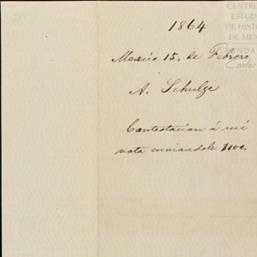 1864
CENTRO
ESTUD
DE HISTO
DE MEX
FUNDA
Carlos
Mexico 15, de Febrero
A. Schulze
Contestacion á mi
nota enviandole $100.